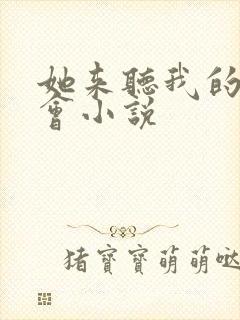 她来聽我的
會小説
猪寶寶萌萌哒